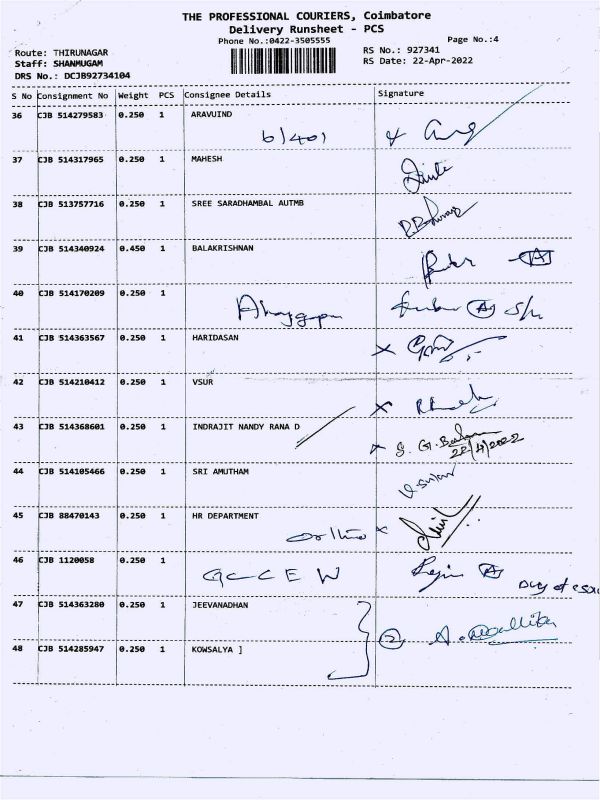 THE PROFESSIONAL COURIERS, Coimbatore
Delivery Runsheet - PCS
Phone No.:0422-3505555
Page No.:4
Route: THIRUNAGAR
RS No.: 927341
Staff: SHANMUGAM
RS Date: 22-Apr-2022
DRS No.: DCJB92734104
S No Consignment No Weight PCS Consignee Details Signature
36 CJB 514279583 0.250 1 ARAVUIND
6/401
37 CJB 514317965 0.250 1 MAHESH
38 CJB 513757716 0.250 1 SREE SARADHAMBAL AUTMB
39 CJB 514340924 0.450 1 BALAKRISHNAN
A
40 CJB 514170209 0.250 1
A
41 CJB 514363567 0.250 1 HARIDASAN
42 CJB 514210412 0.250 1 VSUR
43 CJB 514368601 0.250 1 INDRAJIT NANDY RANA D
22/4/2022
44 CJB 514105466 0.250 1 SRI AMUTHAM
45 CJB 88470143 0.250 1 HR DEPARTMENT
46 CJB 1120058 0.250 1
GCCEW A
47 CJB 514363280 0.250 1 JEEVANADHAN
2
48 CJB 514285947 0.250 1 KOWSALYA ]